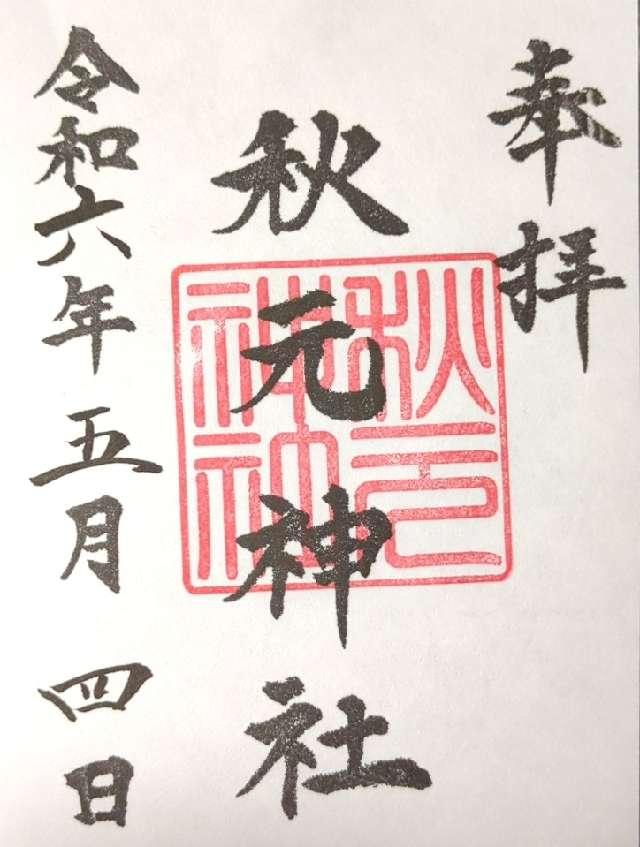 奉拝
秋元神社
秋元
神社
令和六年五月四日